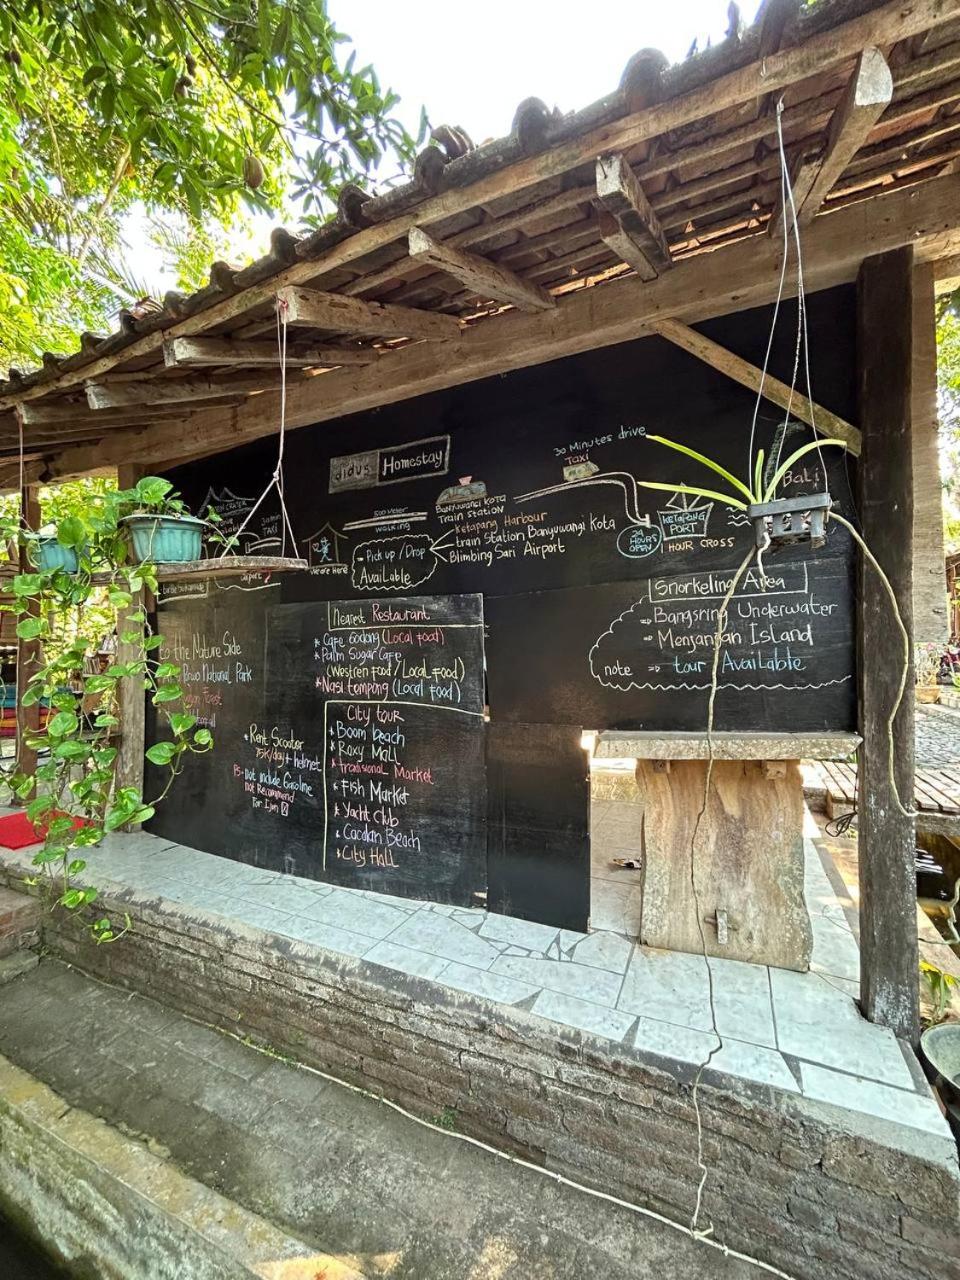 didu's Homestay
30 Minutes drive
TAXI
Bali
Banyuwangi Kota
Train Station
500 Meter
walking
We are Here
30min
TAXI
Pick up / Drop
Available
Ketapang Harbour
train Station Banyuwangi Kota
Blimbing Sari Airport
24
HOURS
OPEN
KETAPANG
PORT
1 HOUR CROSS
airport
Snorkeling Area
⇒ Bangsring Underwater
⇒ Menjangan Island
note ⇒ tour Available
Nearest Restaurant
* Cafe Godong (Local food)
* Palm Sugar Cafe
(Westren food / Local food)
* Nasi tempong (Local food)
to the Nature Side
Purwo National Park
Forest
City tour
* Boom beach
* Roxy Mall
* Tradisional Market
* Fish Market
* Yacht Club
* Cacalan Beach
* City Hall
* Rent Scooter
75K/day + helmet
PS: not include Gasoline
not Recommend
For Ijen